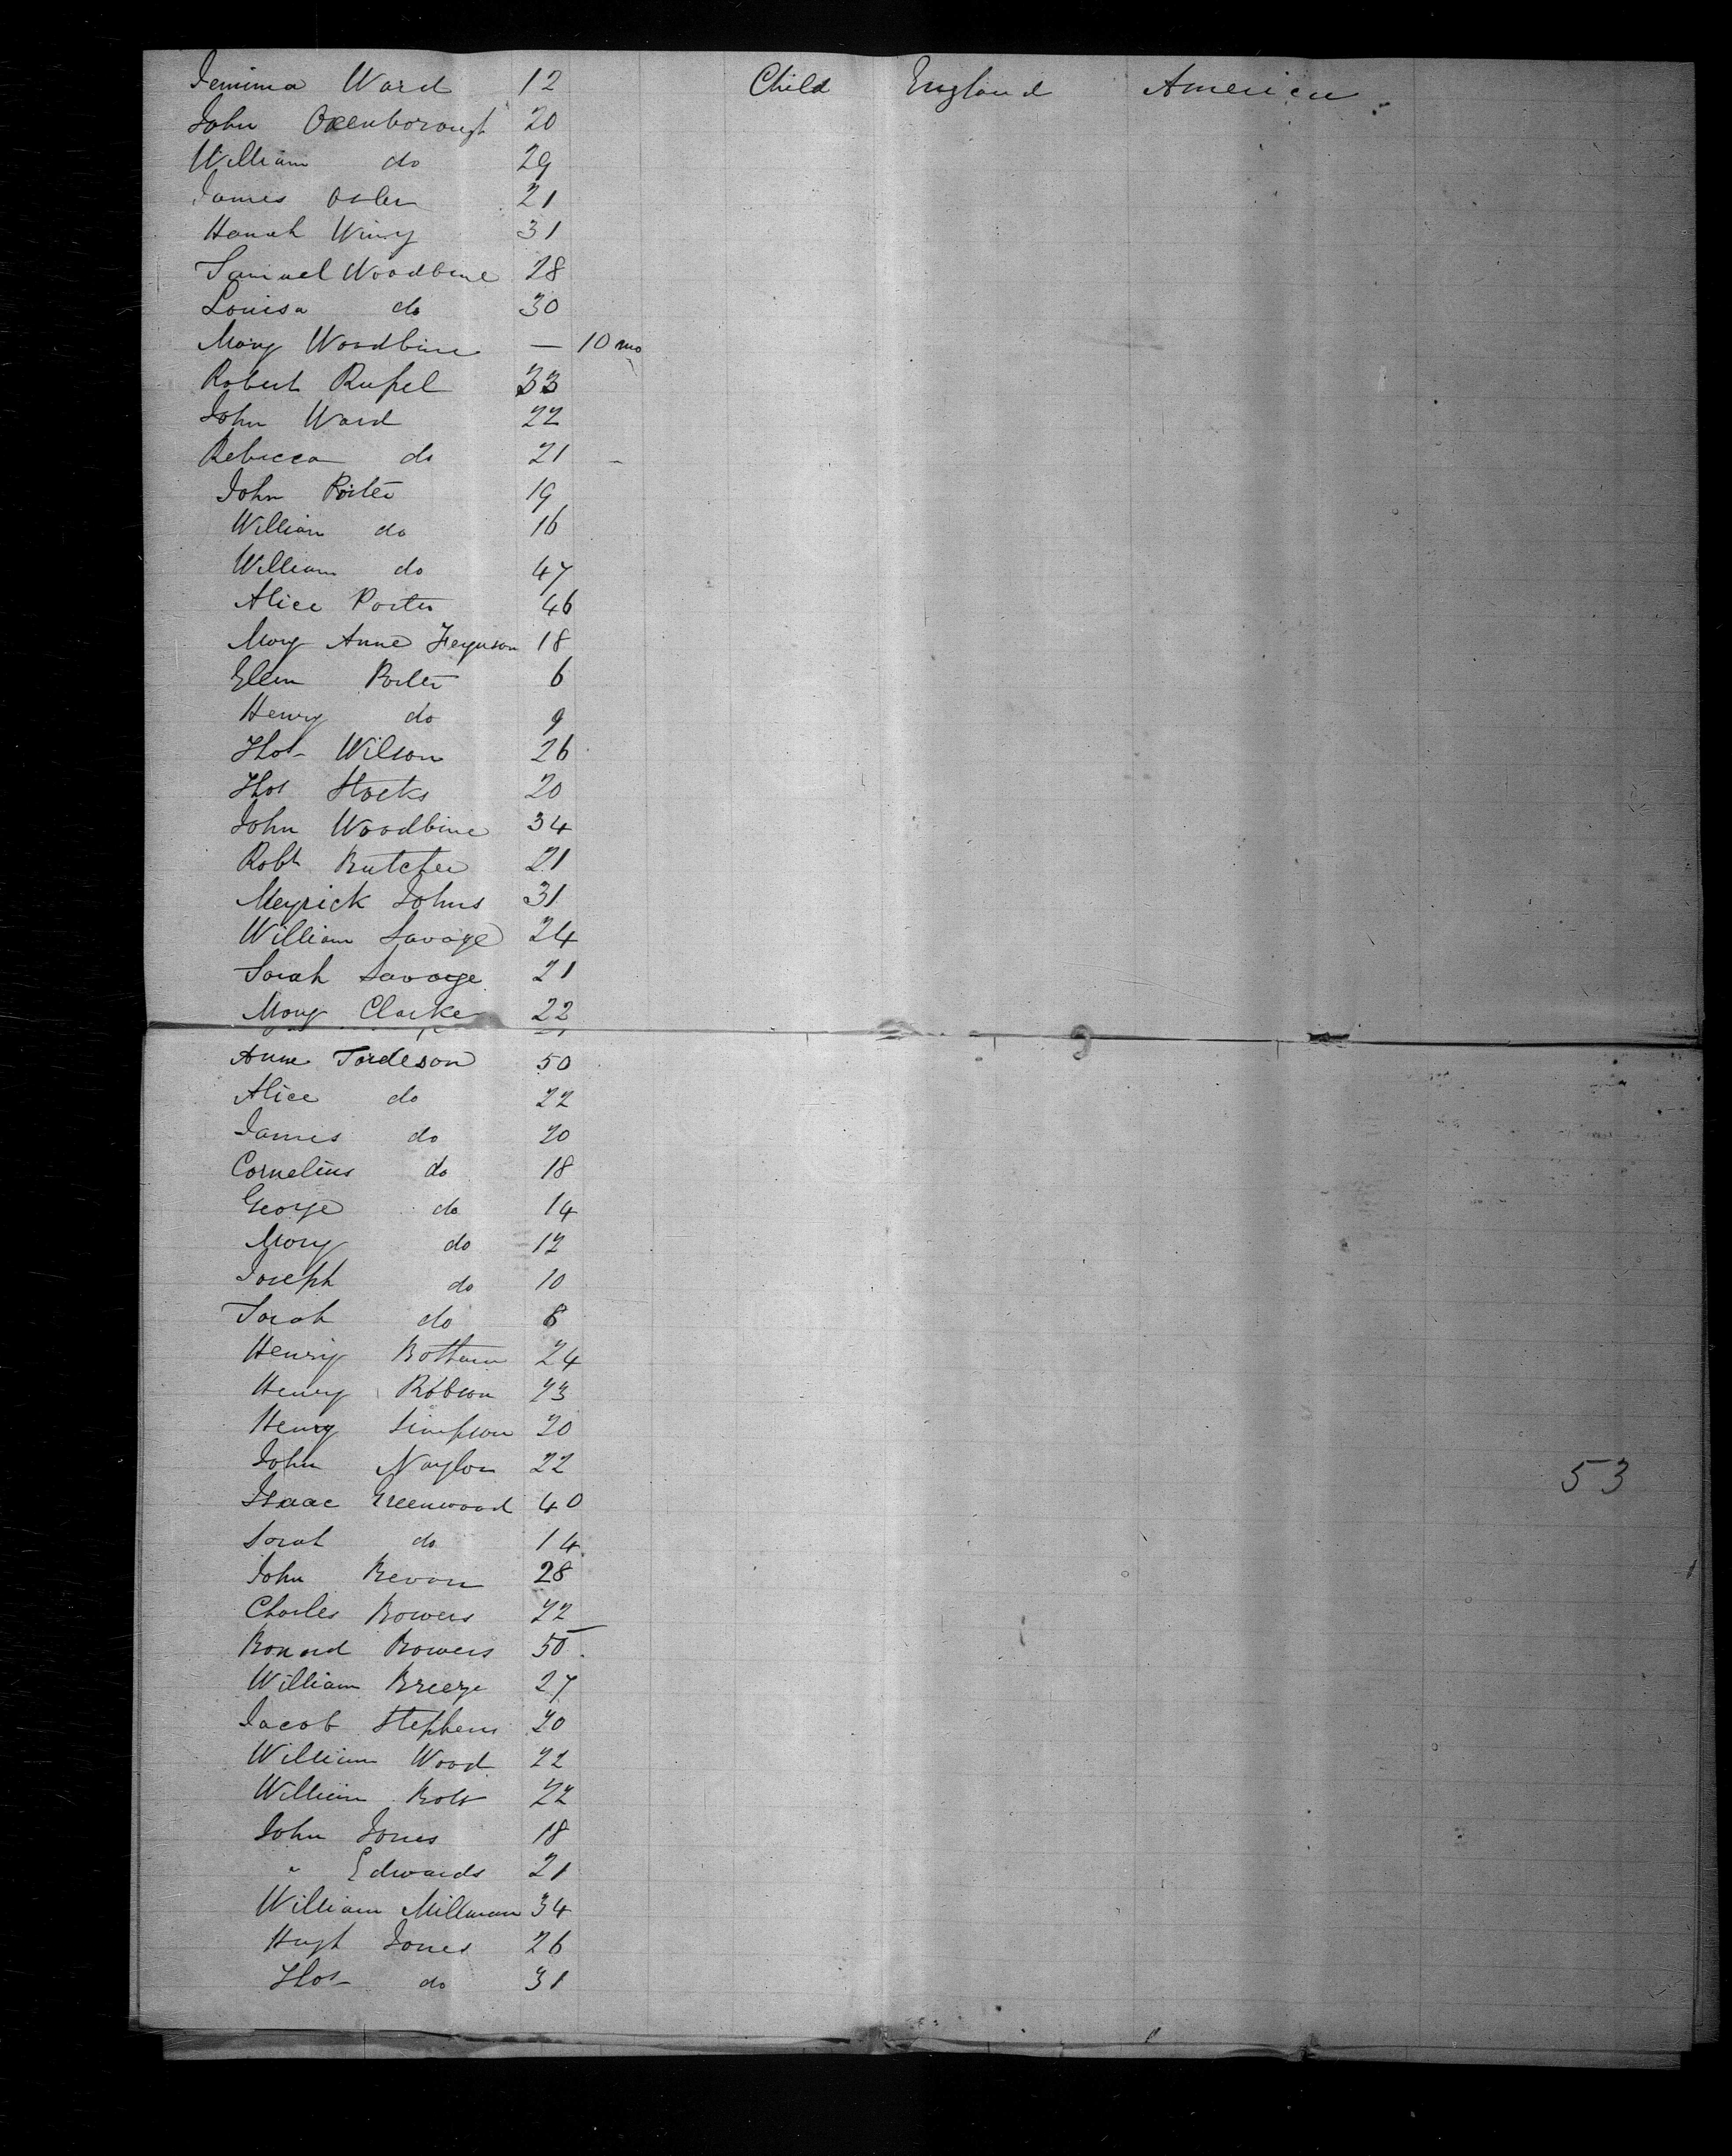 Jemima Ward 12 Child England America
John Oxenborough 20
William do 29
James Osler 21
Hanah Winy 31
Samuel Woodbine 28
Louisa do 30
Mary Woodbine — 10 mo
Robert Rufsel 33
John Ward 22
Rebecca do 21
John Porter 19
William do 16
William do 47
Alice Porter 46
Mary Anne Ferguson 18
Ellen Porter 6
Henry do 9
Thos Wilson 26
Thos Stocks 20
John Woodbine 34
Robt Butcher 21
Meyrick Johns 31
William Savage 24
Sarah Savage 21
Mary Clarke 22
Anne Tordeson 50
Alice do 22
James do 20
Cornelius do 18
George do 14
Mary do 12
Joseph do 10
Sarah do 8
Henry Bottam 24
Henry Robson 23
Henry Simpson 20
John Naylor 22
53
Isaac Greenwood 40
Sarah do 14
John Bevan 28
Charles Bowers 22
Bowers 50
William Breeze 27
Jacob Stephens 20
William Wood 22
William 22
John Jones 18
" Edwards 21
William Millman 34
Hugh Jones 26
Thos do 31